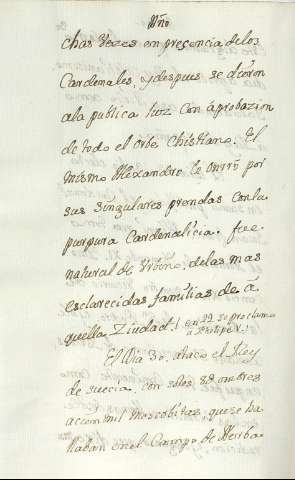 Año
chas Vezes em presencia de los
Cardenales, y despues se dieron
a la publica luz con aprobazion
de todo el Orbe Christiano. El
mismo Alexandre le onrrò por
sus singulares prendas con la
purpura Cardenalicia. fue
natural de Vrbino, de las mas
esclarecidas familias de a
quella Ziudad. en 22. se proclamo
a Phelipe V.
El Dia 30. ataco el Rey
de suecia, con solos 8@ ombres
a cien mil Moscobitas, que se ha
llaban en el Campo de Nerba